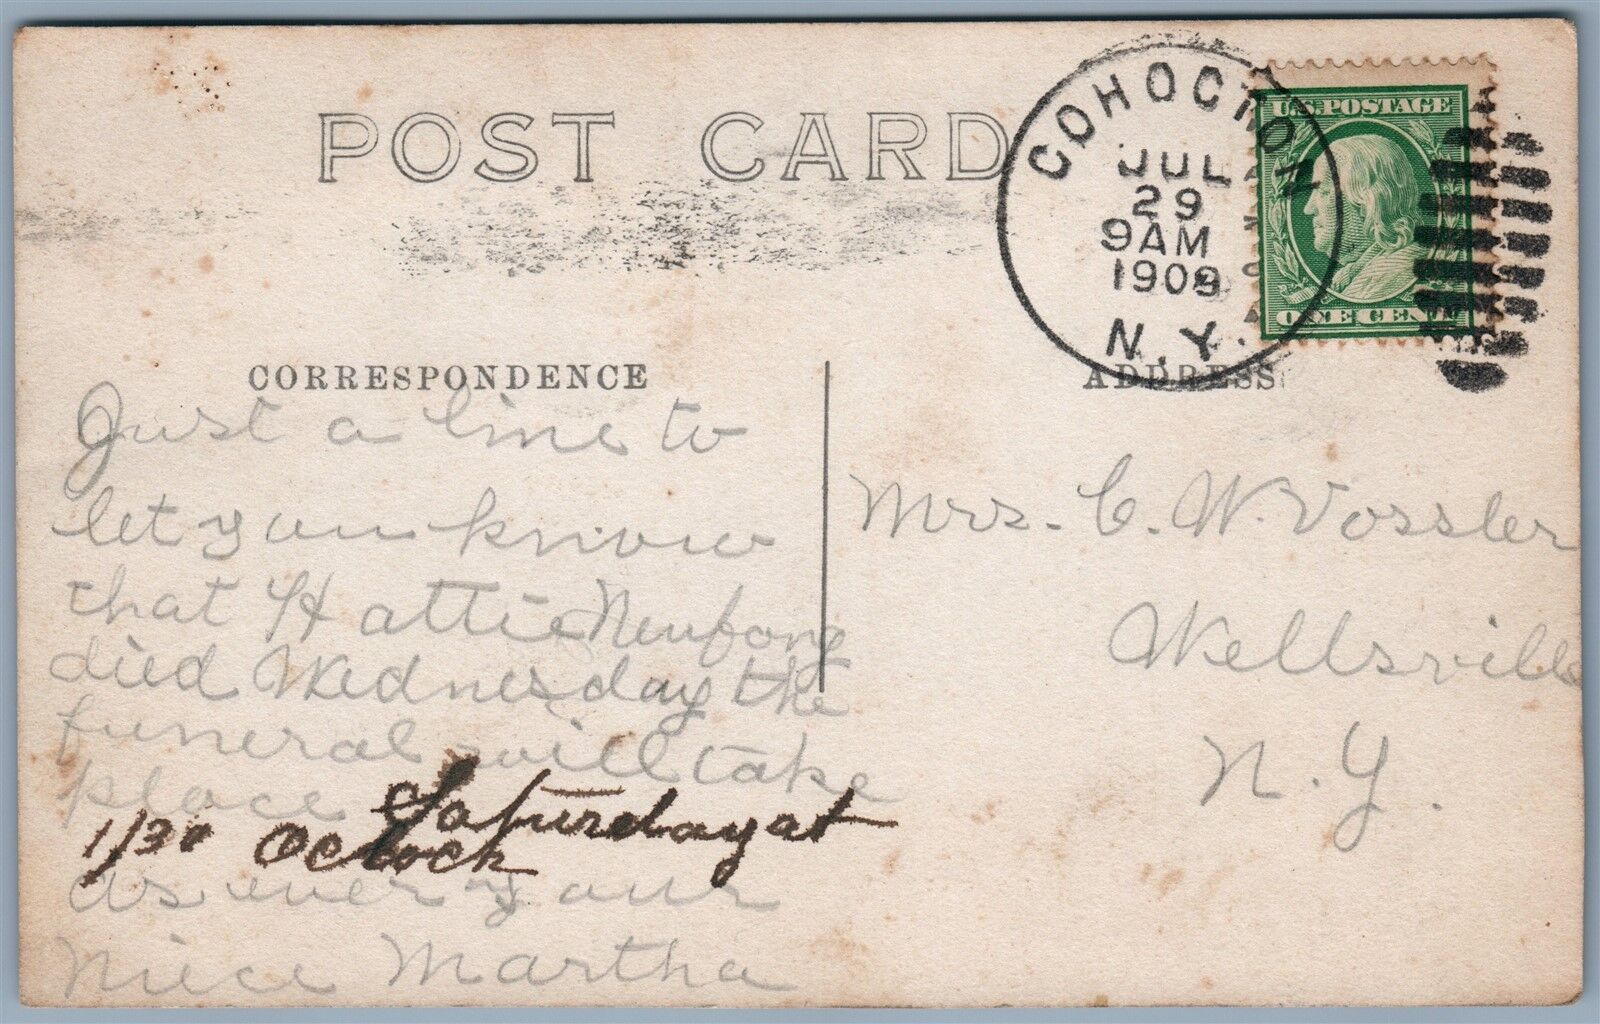 POST CARD
COHOCTON
JUL
29
9AM
1909
N.Y.
U.S. POSTAGE
ONE CENT
CORRESPONDENCE
ADDRESS
Just a line to
let you know
that Hattie
died Wednesday the
funeral will take
place Saturday at
1/30 Oclock
as ever your
niece Martha
Mrs. C. W. Vossler
Wellsville
N.Y.